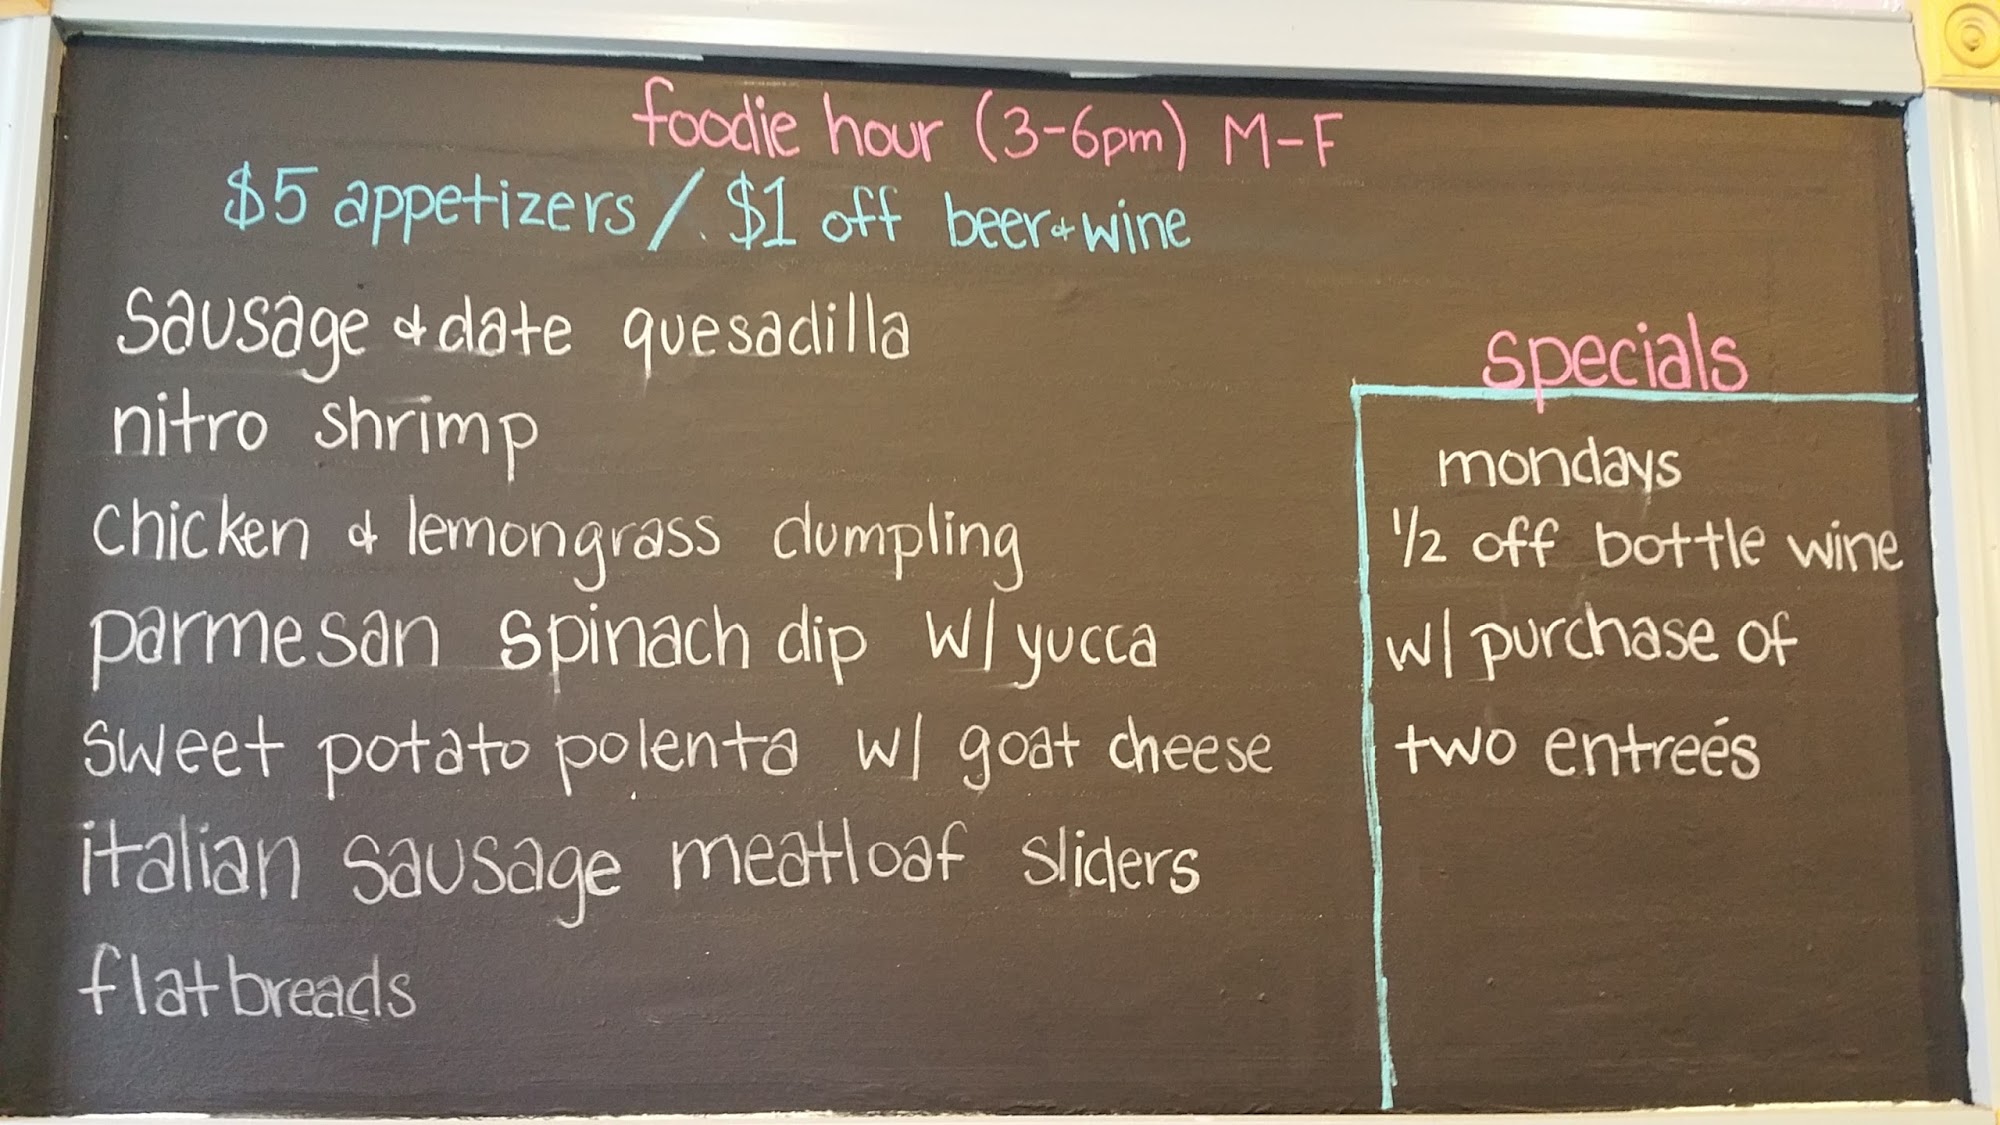 foodie hour (3-6pm) M-F
$5 appetizers / $1 off beer & wine
sausage & date quesadilla
nitro shrimp
chicken & lemongrass dumpling
parmesan spinach dip w/ yucca
sweet potato polenta w/ goat cheese
italian sausage meatloaf sliders
flatbreads
specials
mondays
1/2 off bottle wine
w/ purchase of
two entreés